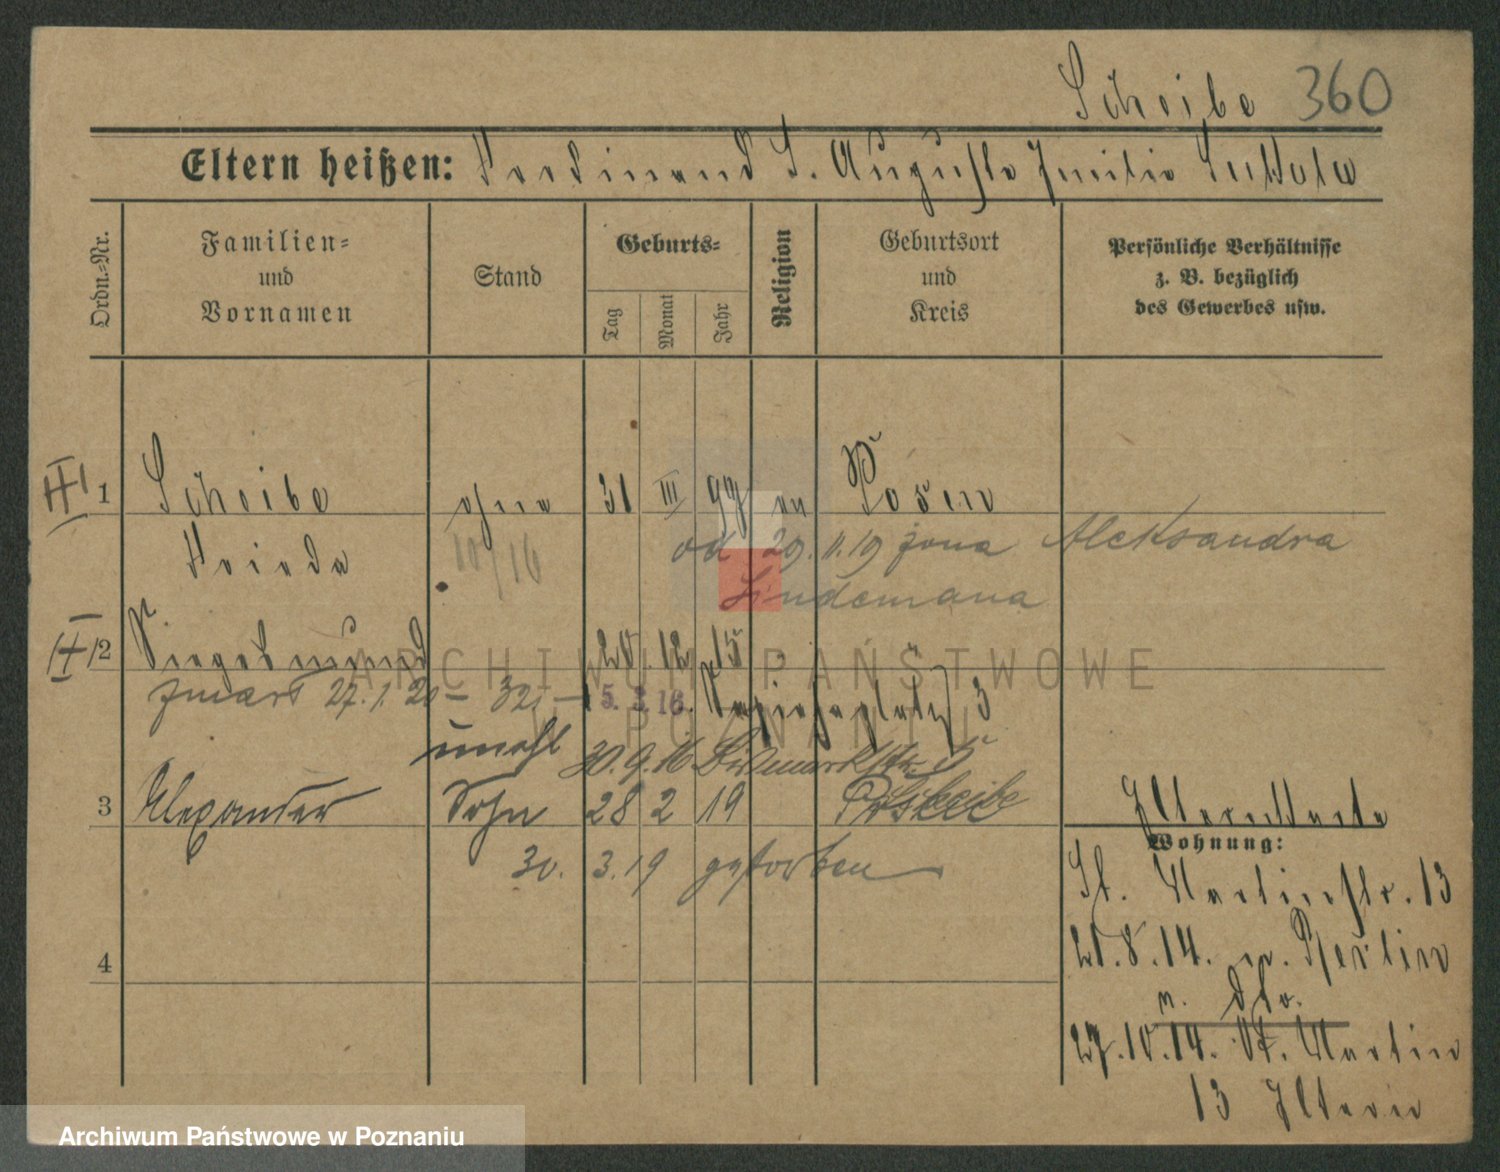 Scheibe 360
Eltern heißen: Ferdinand S. Auguste Emilie
Ordn.-Nr.
Familien-
und
Vornamen
Stand
Geburts-
Tag
Monat
Jahr
Religion
Geburtsort
und
Kreis
Persönliche Verhältnisse
z. B. bezüglich
des Gewerbes usw.
1 Scheibe ohne 31 III 97 ev Posen
Frieda 10/16 od 29.11.19 żona Aleksandra
Lindemana
2 Siegesmund 20. 12. 15
zmarł 27.1.20 – 5.2.16. Sapiehaplatz 3
unehl 30.9.16. Bismarckstr. 5
3 Alexander Sohn 28 2 19
30. 3. 19 gestorben
4
Elternkarte
Wohnung:
St. Martinstr. 13
21.8.14. n. Berlin
n. dto.
27.10.14. St. Martin
13 Eltern
ARCHIWUM PAŃSTWOWE
W POZNANIU
Archiwum Państwowe w Poznaniu